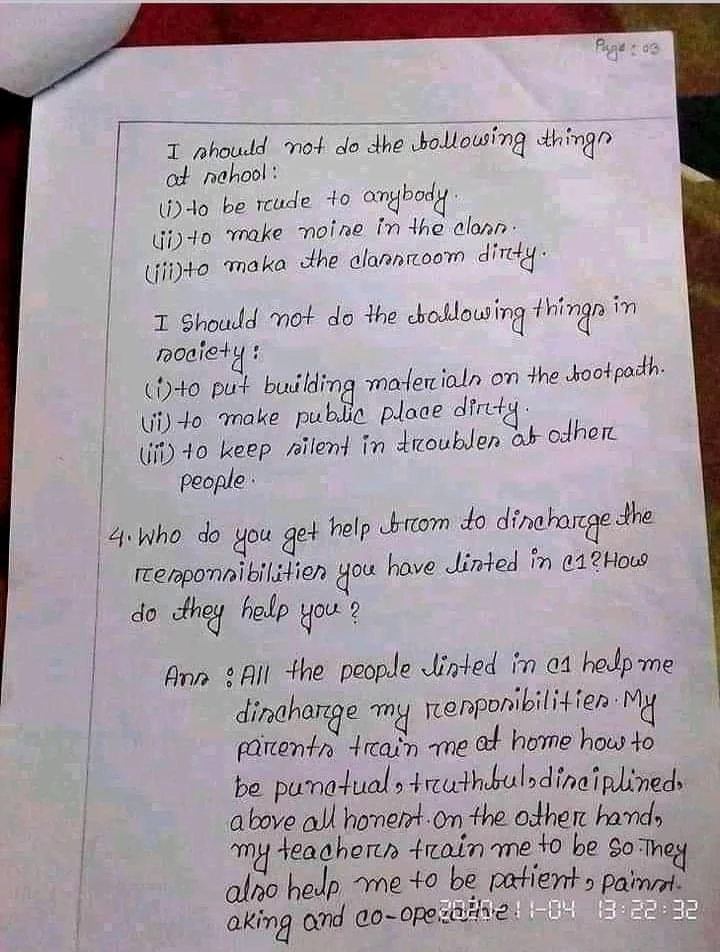 Page: 03
I should not do the following things
at school:
(i) to be rude to anybody.
(ii) to make noise in the class.
(iii) to maka the classroom dirty.
I Should not do the following things in
society:
(i) to put building materials on the footpath.
(ii) to make public place dirty.
(iii) to keep silent in troubles of other
people.
4. Who do you get help from to discharge the
responsibilities you have listed in c1? How
do they help you?
Ans: All the people listed in c1 help me
discharge my responsibilities. My
parents train me at home how to
be punctual, truthful, disciplined,
above all honest. on the other hand,
my teachers train me to be so. They
also help me to be patient, painst-
aking and co-operative.
2020-11-04 13:22:32